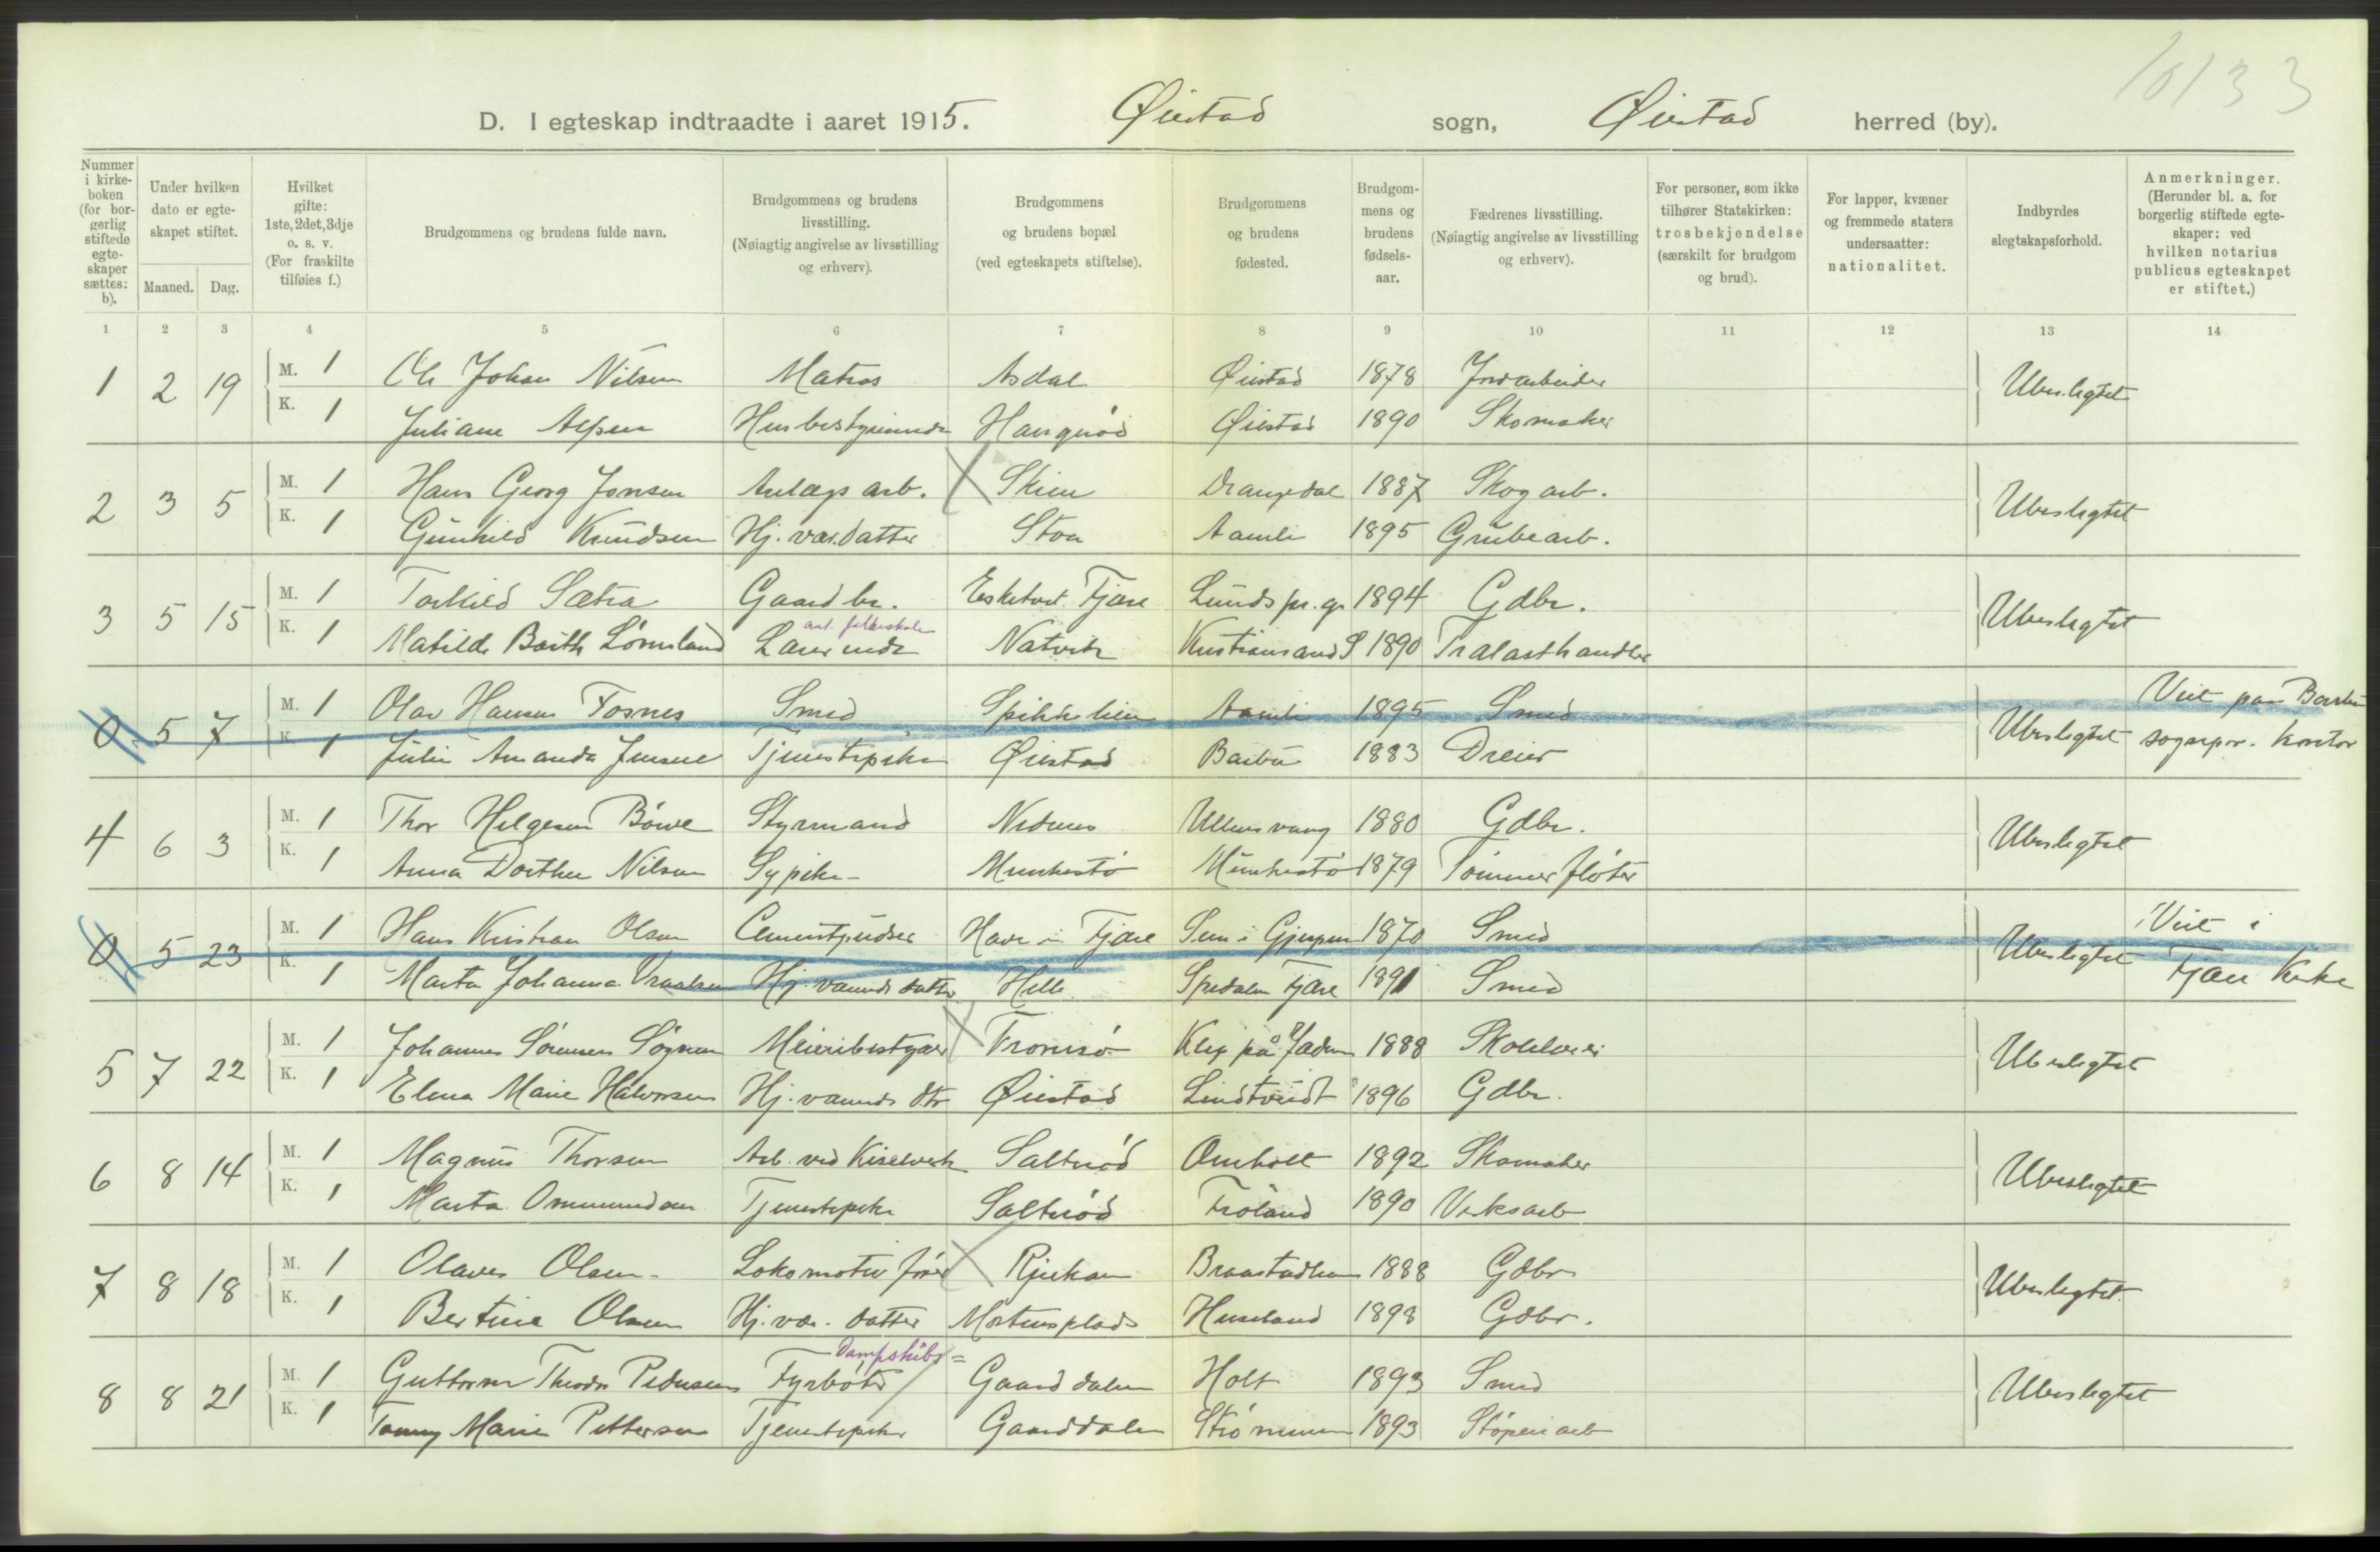 10133
D. I egteskap indtraadte i aaret 1915. Øiestad sogn, Øiestad herred (by).
Nummer i kirkeboken (for borgerlig stiftede egteskaper sættes: b).
Under hvilken dato er egteskapet stiftet.
Maaned. Dag.
Hvilket gifte: 1ste, 2det, 3dje o. s. v. (For fraskilte tilføies f.)
Brudgommens og brudens fulde navn.
Brudgommens og brudens livsstilling. (Nøiagtig angivelse av livsstilling og erhverv).
Brudgommens og brudens bopæl (ved egteskapets stiftelse).
Brudgommens og brudens fødested.
Brudgommens og brudens fødselsaar.
Fædrenes livsstilling. (Nøiagtig angivelse av livsstilling og erhverv).
For personer, som ikke tilhører Statskirken: trosbekjendelse (særskilt for brudgom og brud).
For lapper, kvæner og fremmede staters undersaatter: nationalitet.
Indbyrdes slegtskapsforhold.
Anmerkninger. (Herunder bl. a. for borgerlig stiftede egteskaper: ved hvilken notarius publicus egteskapet er stiftet.)
1 2 3 4 5 6 7 8 9 10 11 12 13 14
1 2 19 M. 1 Ole Johan Nilsen Matros Asdal Øiestad 1878 Jordarbeider Ubeslegtet
K. 1 Juliane Husbestyrerinde Øiestad 1890 Skomaker
2 3 5 M. 1 Hans Georg Jonsen Anlægs arb. Skien Drangedal 1887 Skog arb. Ubeslegtet
K. 1 Gunhild Knudsen Hj. vær. datter Stoa Aamli 1895 Grubearb.
3 5 15 M. 1 Torkild Sætra Gaardbr. Fjære Lunds pr. gj 1894 Gdbr. Ubeslegtet
ant. folkeskole
K. 1 Matilde Barth Lømsland Lærerinde Natvik Kristiansand S 1890 Trælasthandler
0 5 7 M. 1 Olav Hansen Fosnes Smed Spikkelien Aamli 1895 Smed Ubeslegtet Viet paa Barbu
K. 1 Julie Amanda Jensen Tjenestepike Øiestad Barbu 1883 Dreier sogнepr. kontor
4 6 3 M. 1 Thor Helgesen Børve Styrmand Nedenes Ullensvang 1880 Gdbr. Ubeslegtet
K. 1 Anna Dorthea Nilsen Sypike Munkestø Munkestø 1879 Tømmerfløter
0 5 23 M. 1 Hans Kristian Olsen Cementpudser Have i Fjære i Gjerpen 1870 Smed Ubeslegtet Viet i
K. 1 Marta Johanna Vraalsen Hj. værende datter Helle Spedalen Fjære 1891 Smed Fjære Kirke
5 7 22 M. 1 Johannes Sørensen Meieribestyrer Tromsø Klep på Jæderen 1888 Ubeslegtet
K. 1 Elena Marie Halvorsen Hj. værende dtr Øiestad Lindtveidt 1896 Gdbr.
6 8 14 M. 1 Magnus Thorsen Arb. ved Kiselverk Saltrød Omholt 1892 Skomaker Ubeslegtet
K. 1 Marta Ommundsen Tjenestepike Saltrød Frøland 1890 Verksarb
7 8 18 M. 1 Olaves Olsen Lokomotiv fører Rjukan Braastadheien 1888 Gdbr Ubeslegtet
K. 1 Bertine Olsen Hj. vær. datter Mortensplads Huseland 1898 Gdbr.
Dampskibs=
8 8 21 M. 1 Guttorm Theodor Pedersen Fyrbøter Gaarddalen Holt 1893 Smed Ubeslegtet
K. 1 Tonny Marie Pettersen Tjenestepike Gaarddalen Strømmen 1893 Støperiarb